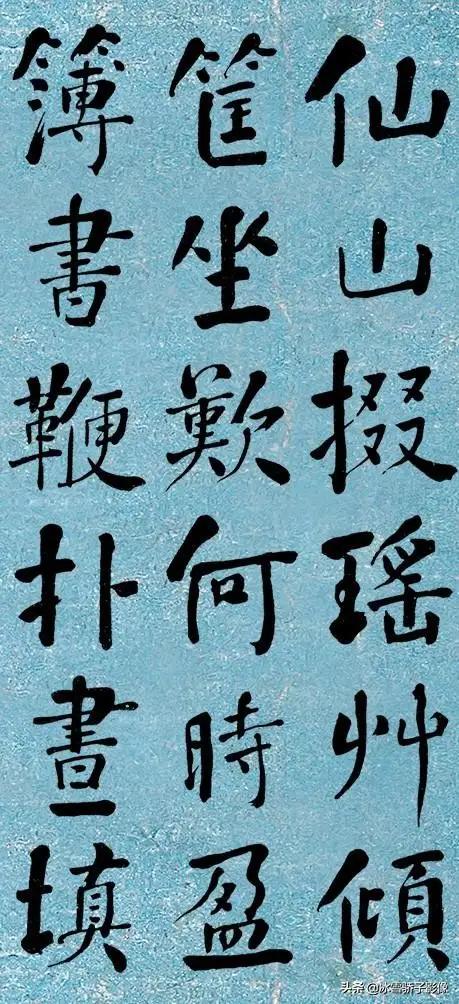 仙山掇瑶艸傾
筐坐歎何時盈
簿書鞭扑晝填
头条@冰雪骄子影像